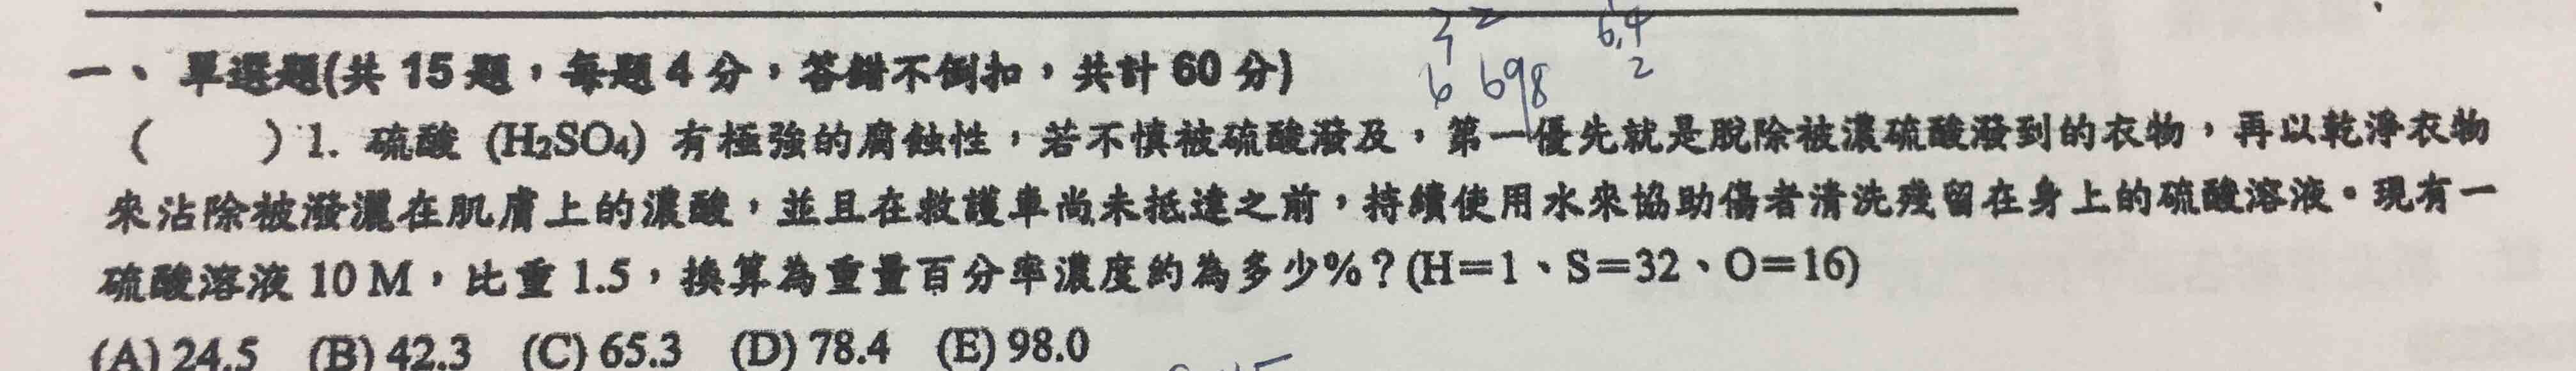 3 2 6.4
6 698 2
一、單選題(共 15 題，每題 4 分，答錯不倒扣，共計 60 分)
(　　) 1. 硫酸 (H₂SO₄) 有極強的腐蝕性，若不慎被硫酸潑及，第一優先就是脫除被濃硫酸潑到的衣物，再以乾淨衣物
來沾除被潑灑在肌膚上的濃酸，並且在救護車尚未抵達之前，持續使用水來協助傷者清洗殘留在身上的硫酸溶液。現有一
硫酸溶液 10 M，比重 1.5，換算為重量百分率濃度約為多少%？(H＝1、S＝32、O＝16)
(A) 24.5　(B) 42.3　(C) 65.3　(D) 78.4　(E) 98.0